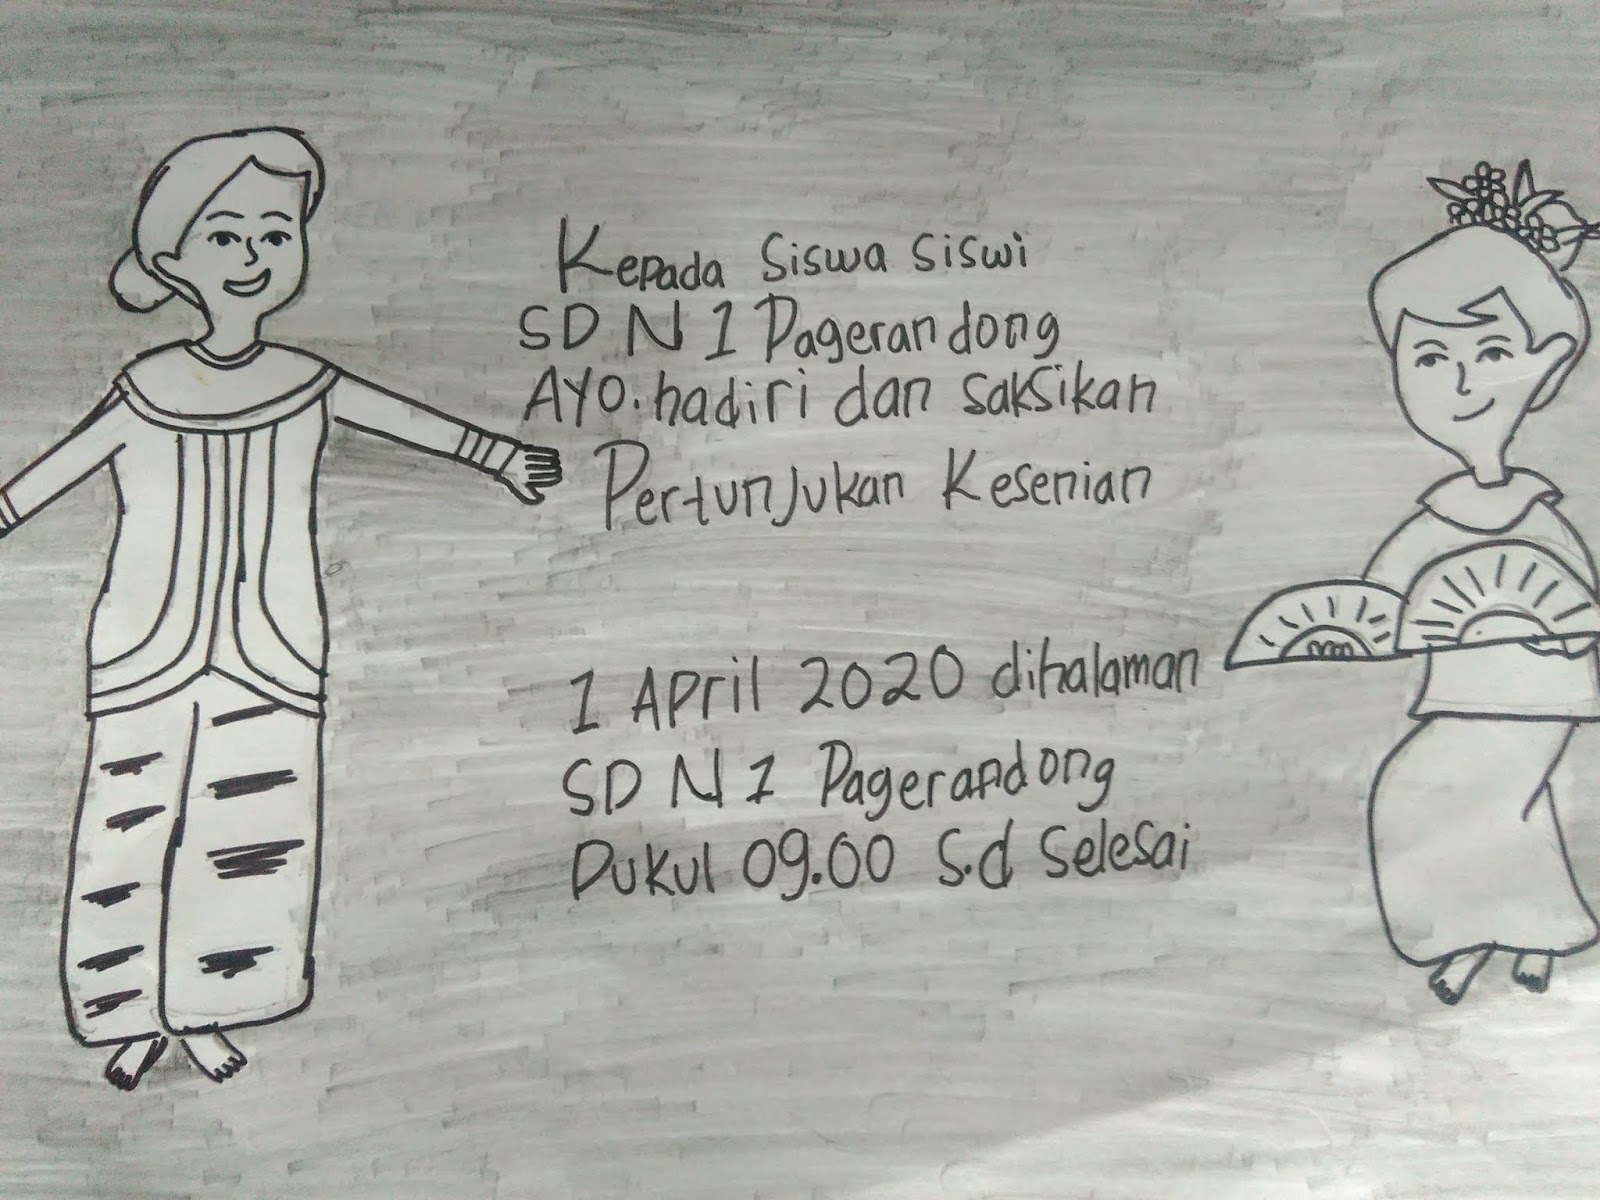 Kepada siswa siswi
SD N 1 Pagerandong
AYO. hadiri dan saksikan
Pertunjukan Kesenian
1 April 2020 dihalaman
SD N 1 Pagerandong
Pukul 09.00 s.d selesai